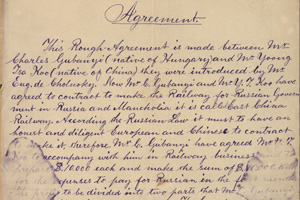 Agreement.
This Rough Agreement is made between Mr
Charles Gubanyi (native of Hungary) and Mr Yoong
Tsa Koo (native of China) they were introduced by Mr
Eug. de Cholnoky. Now Mr C. Gubanyi and Mr Y. T. Koo have
agreed to contract to make the Railway for Russian Govern
ment in Russia and Manchuria it is call East China
Railway. According the Russian Law it must to have an
honest and diligent European and Chinese to contract
make it, therefore Mr C. Gubanyi have agreed Mr Y. T.
Koo to accompany with him in Railway business
each and make the sum of
expenses to pay for Russian in the
to be divided into two parts that Mr C. Gubanyi